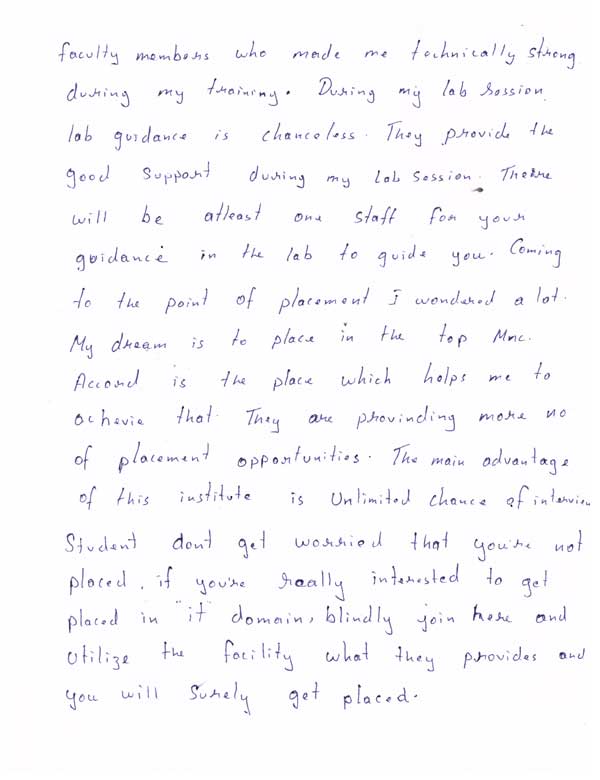 faculty members who made me technically strong
during my training. During my lab session
lab guidance is chanceless. They provide the
good support during my lab session. There
will be atleast one staff for your
guidance in the lab to guide you. Coming
to the point of placement I wondered a lot.
My dream is to place in the top Mnc.
Accord is the place which helps me to
achevie that. They are provinding more no
of placement opportunities. The main advantage
of this institute is Unlimited chance of interview
Student dont get worried that you're not
placed, if you're really interested to get
placed in "it" domain, blindly join here and
utilize the facility what they provides and
you will surely get placed.